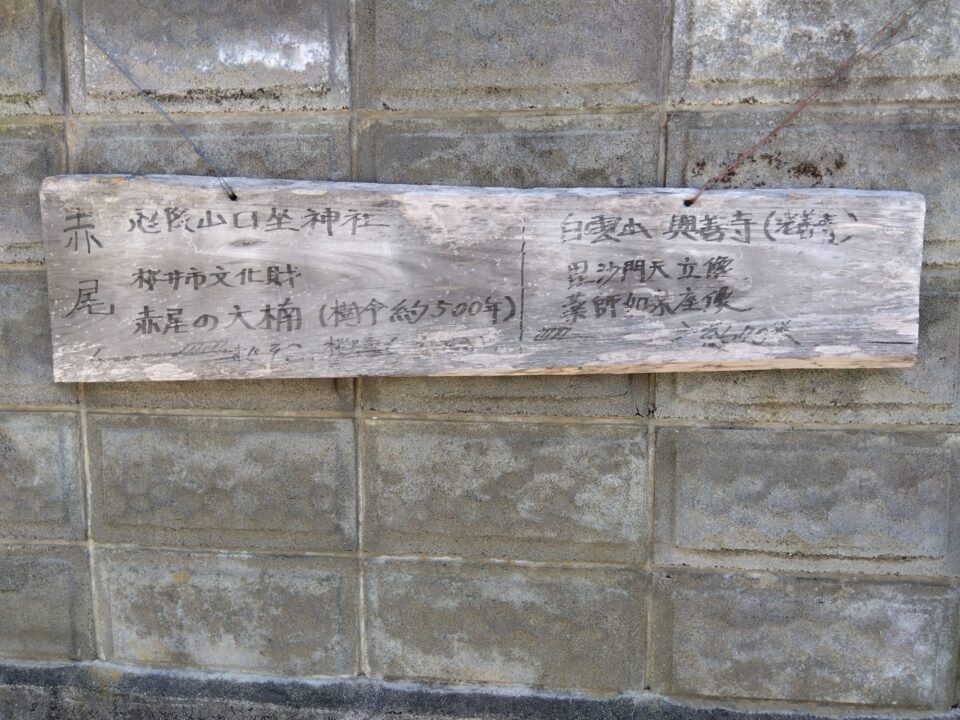 赤尾
忍阪山口坐神社
桜井市文化財
赤尾の大楠(樹令約500年)
白雲山 興善寺(
毘沙門天立像
薬師如来座像